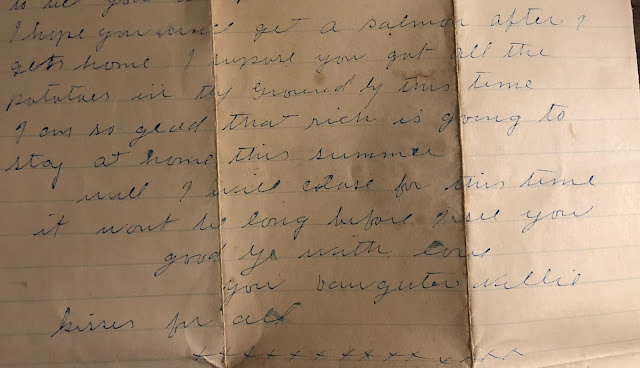 I hope you get a salmon after I
gets home I supose you got all the
potatoes in the ground by this time
I am so glad that rich is going to
stay at home this summer
well I will close for this time
it wont be long before I see you
good ye with love
your daughter Nellie
kisses for all
x x x x x x x x x x x x x